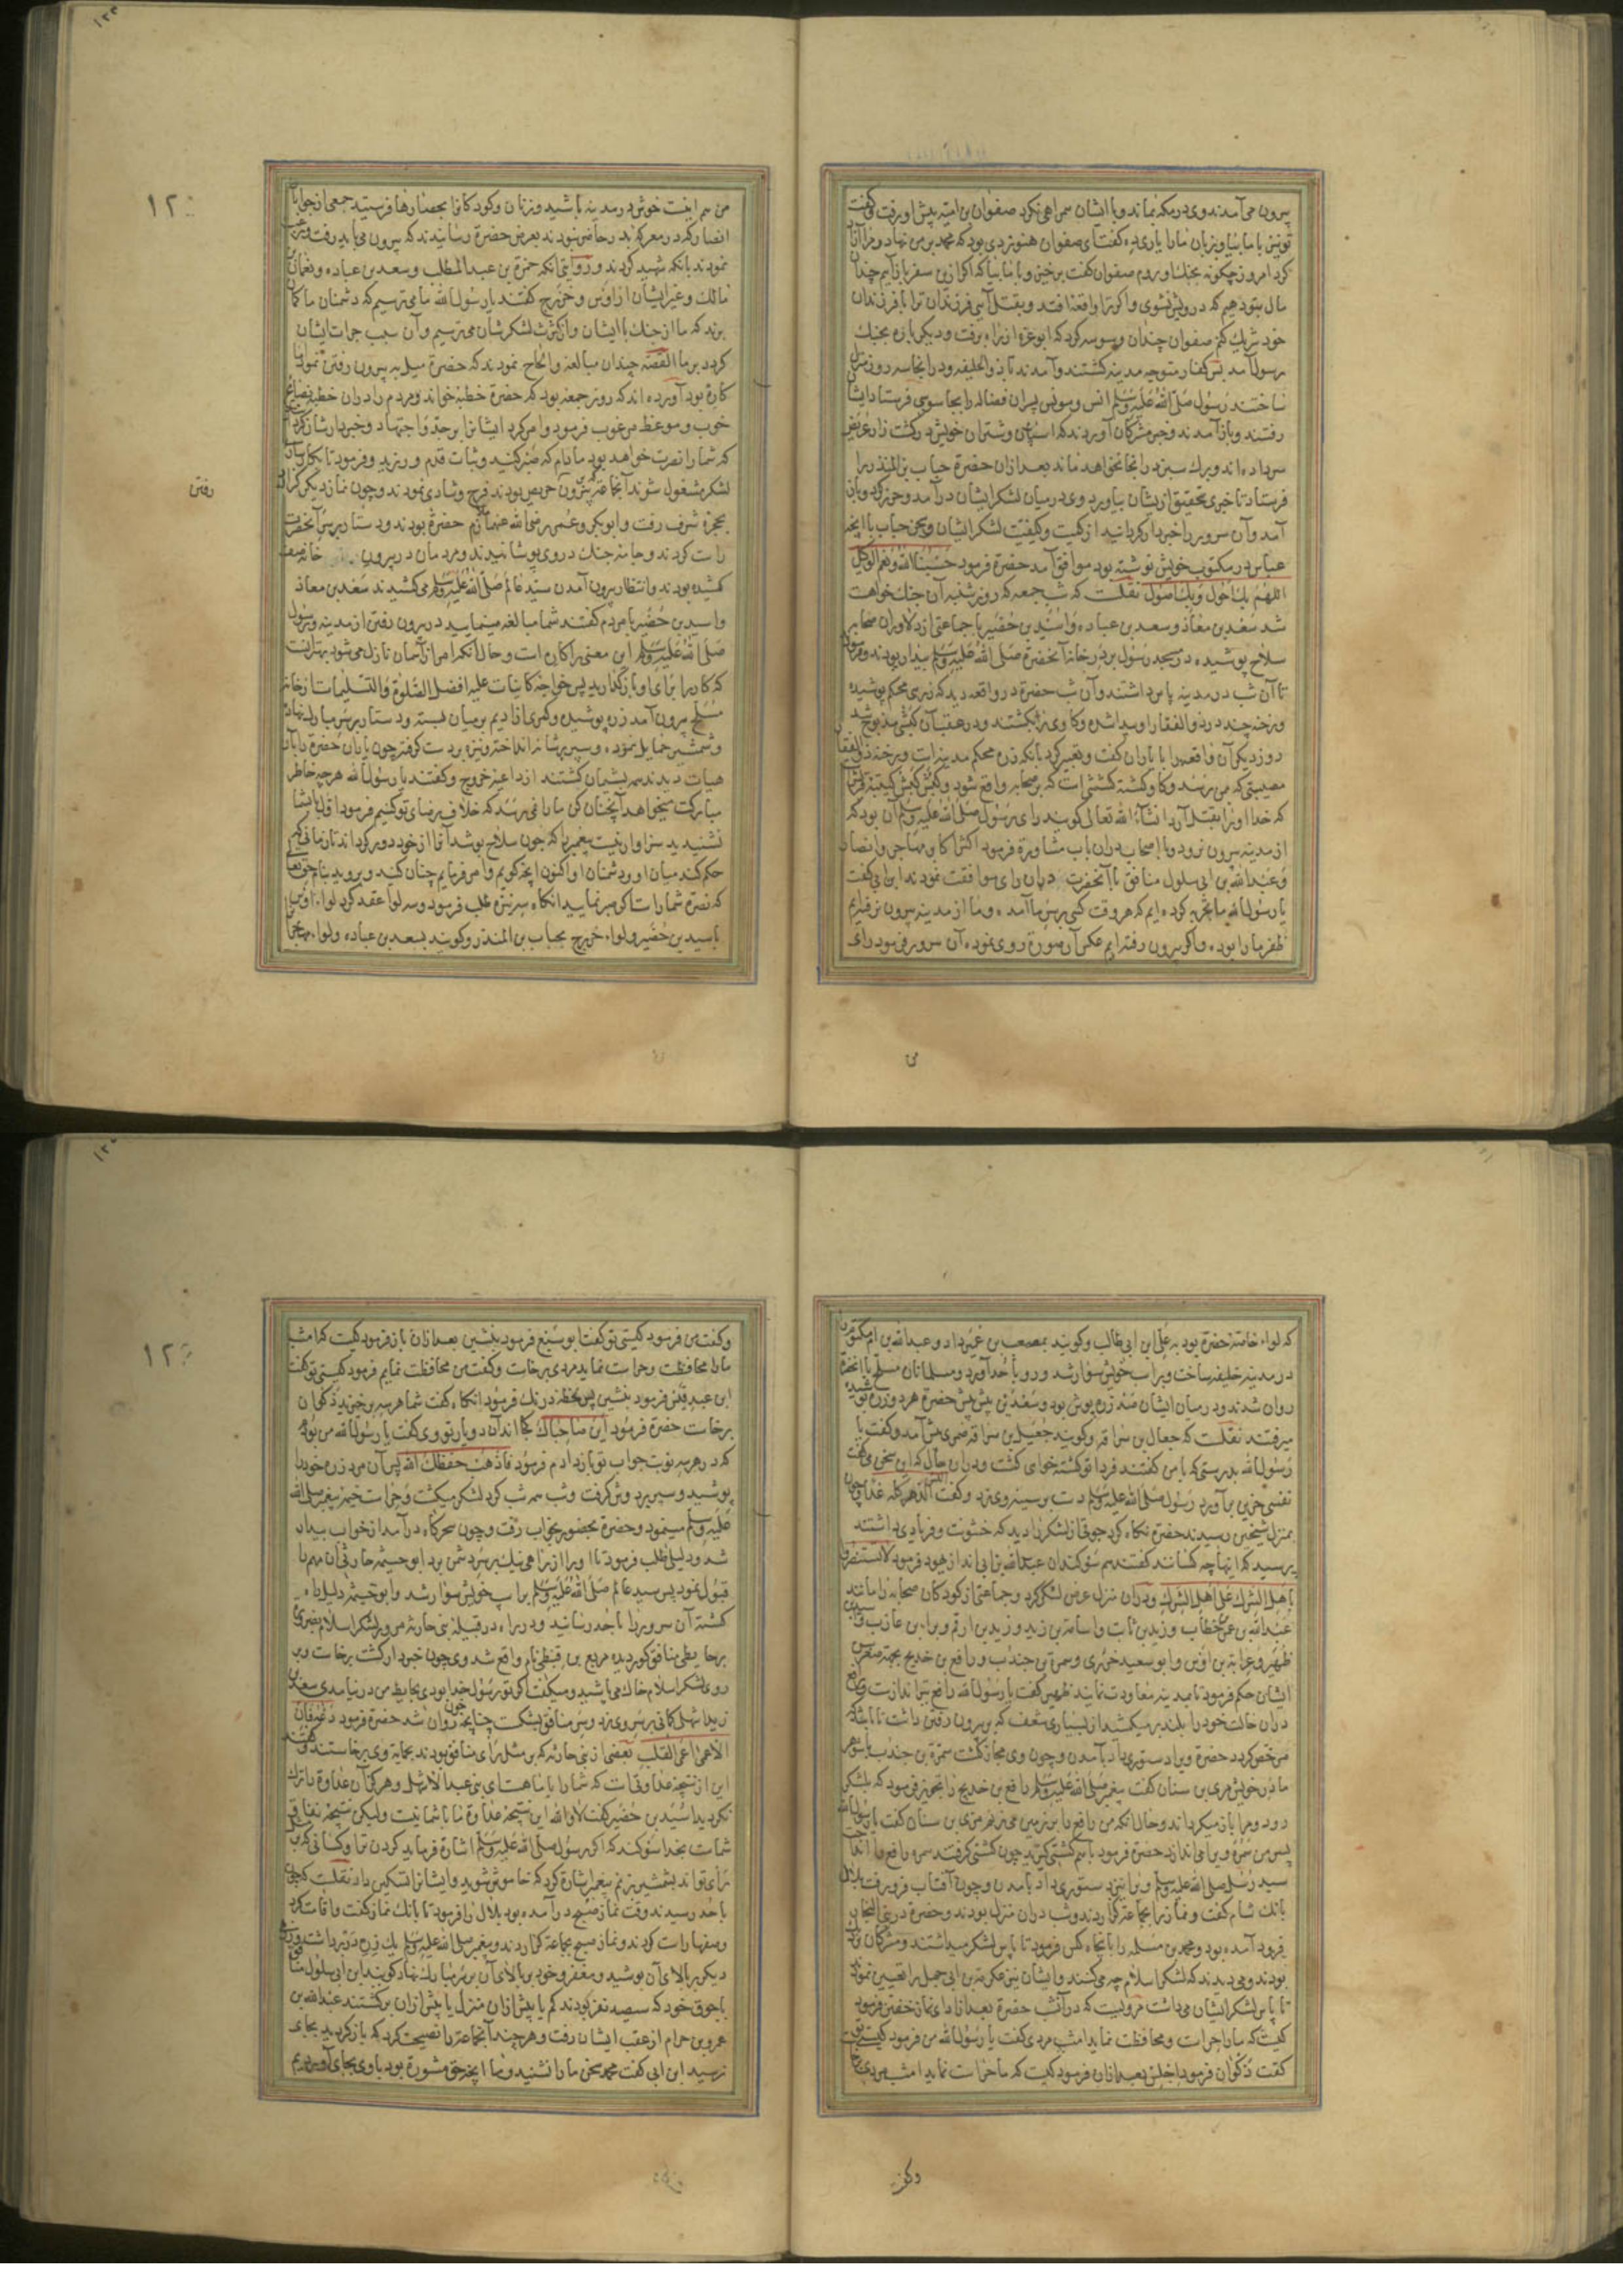 بیرون می آمدند وی در مکه بماند و با ایشان همراهی نکرد صفوان بن امیه پیش او رفت و گفت
تو نیز با ما بیا و بزبان ما را یاری ده گفت ای صفوان هنوز دی بود که محمد بر من نهاد و مرا آزاد
کرد امروز چگونه بجنک او روم صفوان گفت برخیز و با ما بیا که اگر ازین سفر باز آیم چندان
مال بتو دهیم که درویش نشوی و اگر ترا واقعه افتد و بقتل آیی فرزندان ترا با فرزندان
خود شریک کنم صفوان چندان وسوسه کرد که ابو عزه از راه برفت و دیگر باره بجنک
رسول آمد پس کفار متوجه مدینه کشتند و آمدند تا بذو الحلیفه و در انجا سه روز منزل
ساختند رسول صلی الله علیه وسلم انس و مونس پسران فضاله را بجاسوسی فرستاد ایشان
رفتند و باز آمدند و خبر مشرکان آوردند که اسپان و شتران خویش در کشت زار عریض
سر داده اند و برک سبز در انجا نخواهد ماند بعد ازان حضرة حباب بن المنذر را
فرستاد تا خبری تحقیق از یشان بیاورد وی در میان لشکر ایشان در آمد و حزر کرد و باز
آمد و آن سرور را خبردار کردانید از کمیت و کیفیت لشکر ایشان و سخن حباب با آنچه
عباس در مکتوب خویش نوشته بود موافق آمد حضرة فرمود حسبنا الله و نعم الوکیل
اللهم بك احول وبك اصول نقلست که شب جمعه که روز شنبه آن جنک خواست
شد سعد بن معاذ و سعد بن عباده و اسید بن حضیر با جماعتی از دلاوران صحابه
سلاح پوشیده در مسجد رسول بر در خانه آنحضرة صلی الله علیه وسلم بیدار بودند و فرمود
تا آن شب در مدینه پاس داشتند و آن شب حضرة در واقعه دید که زرهی محکم پوشیده
و رخنه چند در ذو الفقار او پیدا شده و کاوی نزد بکشتند و در عقب آن کبشی مذبوح شد
روز دیگر آن واقعه را با یاران گفت و تعبیر کرد بانکه زره محکم مدینه است و رخنه ذو الفقار
مصیبتی که بمن برسد و کاو کشته کشتنی است که بر صحابه واقع شود و کبش کبش کتیبه قریش
که خدا او را بقتل آرد انشاء الله تعالی گویند رای رسول صلی الله علیه وسلم آن بود که
از مدینه بیرون نرود و با اصحاب دران باب مشاورة فرمود اکثر اکابر مهاجر و انصار
و عبد الله بن ابی سلول منافق با آنحضرت دران رای موافقت نمودند ابن ابی گفت
یا رسول الله ما تجربه کرده ایم که هر وقت کسی بر سر ما آمده و ما از مدینه بیرون نرفته ایم
ظفر ما را بوده و اگر بیرون رفته ایم عکس آن صورة روی نموده آن سرور فرمود رای
می
۱۲۰
من هم اینست خوش در مدینه باشید و زنان و کودکانرا بحصارها فرستید جمعی از جوانان
انصار که در معرکه بدر حاضر نبودند بعرض حضرة رسانیدند که بیرون می باید رفت و ترغیب
نمودند بانکه شهید کردند و روایتی انکه حمزة بن عبد المطلب و سعد بن عباده و نعمان بن
مالك و غیر ایشان از اوس و خزرج گفتند یا رسول الله ما می ترسیم که دشمنان ما کمان
برند که ما از جنك با ایشان و از کثرت لشکرشان می ترسیم و آن سبب جرات ایشان
کردد بر ما القصه چندان مبالغه و الحاح نمودند که حضرة میل به بیرون رفتن نمود اما
کاره بود آورده اند که روز جمعه بود که حضرة خطبه خواند و مردم را دران خطبه نصایح
خوب و موعظه مرغوب فرمود و امر کرد ایشانرا بر جد و اجتهاد و خبردارشان کرد
که شما را نصرت خواهد بود مادام که صبر کنید و ثبات قدم ورزید و فرمود تا بکار سازی
لشکر مشغول شوند آنجماعة که بر بیرون حریص بودند فرح و شادی نمودند و چون نماز دیگر کزارد
رفتن
بحجره شرف رفت و ابوبکر و عمر رضی الله عنهما ملازم حضرة بودند و دستار بر سر آنحضرت
راست کردند و جامه جنك در وی پوشانیدند و مردمان در بیرون خانه صف
کشیده بودند و انتظار بیرون آمدن سید عالم صلی الله علیه وسلم می کشیدند سعد بن معاذ
و اسید بن حضیر با مردم گفتند شما مبالغه مینمایید در بیرون رفتن از مدینه و رسول
صلی الله علیه وسلم این معنی را کاره است و حال آنکه امر از آسمان نازل می شود بهتر آنست
که کار را برای او باز کذارید پس خواجه کاینات علیه افضل الصلوة و التسلیمات از خانه
مسلح بیرون آمد زره پوشیده و کمری از ادیم بر میان بسته و دستار بر سر مبارك نهاده
و شمشیر حمایل نموده و سپر بر شانه انداخته و نیزه بر دست کرفته چون یاران حضرة را بآن
هیات دیدند همه پشیمان کشتند از داعیه خروج و گفتند یا رسول الله هرچه خاطر
مبارکت میخواهد آنچنان کن ما را نمی رسد که خلاف رضای تو کنیم فرمود اول با شما
نشنیدید سزاوار نیست پیغمبر را که چون سلاح پوشد آنرا از خود دور کرداند تا زمانی که
حکم کند میان او و دشمنان او اکنون آنچه کویم و امر فرمایم چنان کنید و بروید بنام حق تعالی
که نصرة شما راست اکر صبر نمایید انکاه سه نیزه طلب فرمود و سه لوا عقد کرد لواء اوس
باسید بن حضیر و لواء خزرج بحباب بن المنذر و کویند بسعد بن عباده و لواء مهاجر
که لواء خاصه حضرة بود به علی ابن ابی طالب و کویند بمصعب بن عمیر داد و عبد الله بن ام مکتوم را
در مدینه خلیفه ساخت و بر اسب خویش سوار شد و رو باحد آورد و مسلمانان مسلح با آنحضرة
روان شدند و در میان ایشان صد زره پوش بود و سعدین پیش پیش حضرة هر دو زره پوشیده
میرفتند نقلست که جعال بن سراقه و کویند جعیل بن سراقه ضمری پیش آمد و گفت یا
رسول الله بدرستی که با من گفتند فردا تو کشته خواهی کشت و دران حال که این سخن می گفت
نفسی حزین بر آورد رسول صلی الله علیه وسلم دست بر سینه وی زد و گفت الیس الدهر کله غدا و چون
بمنزل شیخین رسیدند حضرة نکاه کرد جوقی از لشکر را دید که خشونت و فریادی داشتند
پرسید که اینها چه کسانند گفتند هم سوکندان عبد الله بن ابی اند از یهود فرمود لا تستنصروا
باهل الشرك علی اهل الشرك و دران منزل عرض لشکر کرد و جماعتی از کودکان صحابه را مانند
عبد الله بن عمر خطاب و زید بن ثابت و اسامة بن زید و زید بن ارقم و براء بن عازب و اسید بن
ظهیر و عرابة بن اوس و ابو سعید خدری و سمرة بن جندب و رافع بن خدیج بجهة صغر سن
ایشان حکم فرمود تا بمدینه معاودت نمایند ظهیر گفت یا رسول الله رافع تیر اندازست و رافع
دران حالت خود را بلند بر میکشید از بسیاری شعف که به بیرون رفتن داشت تا باشد که
مرخص کردد حضرة ویرا دستوری داد بآمدن و چون وی مجاز کشت سمرة بن جندب با شوهر
مادر خویش مری بن سنان گفت پیغمبر صلی الله علیه وسلم رافع بن خدیج را تجویز فرمود که بلشکر
رود و مرا باز میکرداند و حال آنکه من رافع را بر زمین می زنم مری بن سنان گفت یا رسول الله
پسر من سمره ویرا می اندازد حضرة فرمود با هم کشتی کیرید چون کشتی کرفتند سمره رافع را انداخت
سید رسل صلی الله علیه وسلم ویرا نیز دستوری داد بآمدن و چون آفتاب فرو رفت بلال
بانك شام گفت و نماز را بجماعة کزاردند و شب دران منزل بودند و حضرة در بنی النجار
فرود آمده بود و محمد بن مسلمه را با پنجاه کس فرمود تا پاس لشکر میداشتند و مشرکان نزدیك
بودند و می دیدند که لشکر اسلام چه می کنند و ایشان نیز عکرمة بن ابی جهل را تعیین نمودند
تا پاس لشکر ایشان می داشت مرویست که در آنشب حضرة بعد از ادای نماز خفتن فرمود
کیست که ما را حراست و محافظت نماید امشب مردی گفت یا رسول الله من فرمود کیستی تو
گفت ذکوان فرمود اجلس بعد ازان فرمود کیست که ما را حراست نماید امشب مردی برخاست
وکفت
۱۲۱
و گفت من فرمود کیستی تو گفت ابو سبع فرمود بنشین بعد ازان باز فرمود کیست که امشب
ما را محافظت و حراست نماید مردی برخاست و گفت من محافظت نمایم فرمود کیستی تو گفت
ابن عبد قیس فرمود بنشین پس لحظه درنك فرمود انکاه گفت شما هر سه برخیزید ذکوان
برخاست حضرة فرمود این صاحباك کجا اند آن دو یار تو وی گفت یا رسول الله من بودم
که در هر سه نوبت جواب تو باز دادم فرمود فاذهب حفظك الله پس آن مرد زره خود را
پوشید و سپر بر دوش کرفت و شب همه شب کرد لشکر میکشت و حراست خیمه پیغمبر صلی الله
علیه وسلم مینمود و حضرة بحضور بخواب رفت و چون سحرکاه در آمد از خواب بیدار
شد و دلیلی طلب فرمود تا او را از راهی نیك بر سر دشمن برد ابو خیثمه حارثی آن مهم را
قبول نمود پس سید عالم صلی الله علیه وسلم بر اسب خویش سوار شد و ابو خیثمه دلیل راه
کشته آن سرور را باحد رسانید و در راه در قبیله بنی حارثه مرور لشکر اسلام بضرورة
بر حایطی منافق کور دیده مربع بن قیظی نام واقع شد وی چون خبردار کشت برخاست و بر
روی لشکر اسلام خاك می پاشید و میگفت اکر تو رسول خدا بودی بحایط من در نیامدی سعد بن
زید اشهلی کمانی بر سر وی زد و سر منافق بشکست چنانچه خون روان شد حضرة فرمود دعوه فان
الاعمی اعمی القلب بعضی از بنی حارثه که بر مثل رای منافق بودند بحمایة وی برخاستند و گفتند
این از نتیجه عداوتی است که شما را با ما هست ای بنی عبد الاشهل و هرکز آن عداوة را ترك
نکردید اسید بن حضیر گفت لا والله این نتیجه عداوة ما با شما نیست ولیکن نتیجه نفاق
شماست بخدا سوکند که اکر رسول صلی الله علیه وسلم اشارة فرماید کردن ترا و کسانی که بر
رای تو اند بشمشیر بزنم پیغمبر اشارة کرد که خاموش شوید و ایشانرا تسکین داد نقلست که چون
باحد رسیدند وقت نماز صبح در آمده بود بلال را فرمود تا بانك نماز گفت و اقامت کرد
و صفها راست کردند و نماز صبح بجماعة کزاردند و پیغمبر صلی الله علیه وسلم یك زره در بر داشت و زره
دیگر بر بالای آن پوشید و مغفر و خود بر بالای آن بر سر مبارك نهاد کویند ابن ابی سلول منافق
با جوق خود که سیصد نفر بودند کم یا بیش ازان منزل یا پیش ازان بر کشتند عبد الله بن
عمرو بن حرام از عقب ایشان رفت و هرچند آنجماعة را نصیحت کرد که باز کردید بجای
نرسید ابن ابی گفت محمد سخن ما را نشنید و ما آنچه حق مشورة بود با وی بجای آوردیم